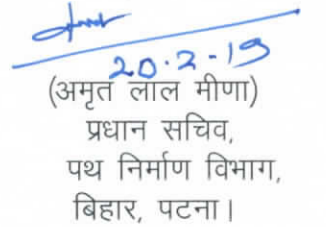 20.2-19
(अमृत लाल मीणा)
प्रधान सचिव,
पथ निर्माण विभाग,
बिहार, पटना।